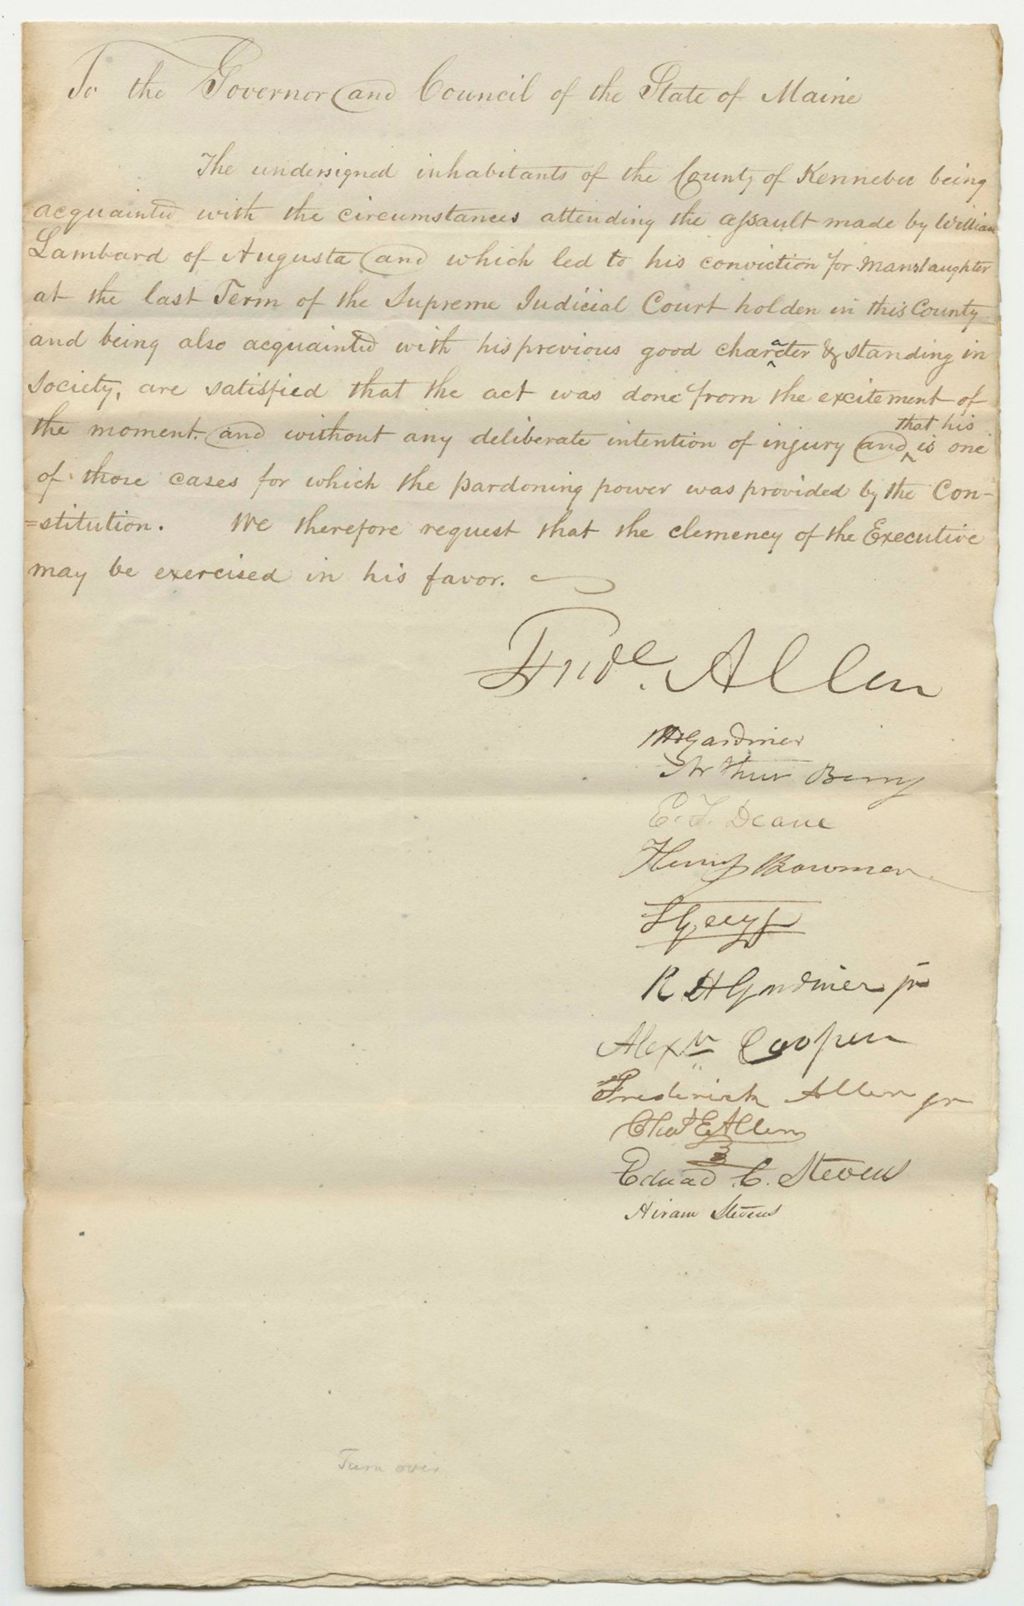 To the Governor and Council of the State of Maine
The undersigned inhabitants of the County of Kennebec being
acquainted with the circumstances attending the assault made by William
Lambard of Augusta and which led to his conviction for Manslaughter
at the last Term of the Supreme Judicial Court holden in this County
and being also acquainted with his previous good character & standing in
society, are satisfied that the act was done from the excitement of
the moment. and without any deliberate intention of injury and that his is one
of those cases for which the pardoning power was provided by the Con-
=stitution. We therefore request that the clemency of the Executive
may be exercised in his favor.
Fredc. Allen
Gardiner
Arthur Berry
E. F. Deane
Henry Bowman
R H Gardiner jr
Alexr Cooper
Frederick Allen jr
Chas E Allen
3
Edward C. Stevens
Hiram Stevens
Turn over